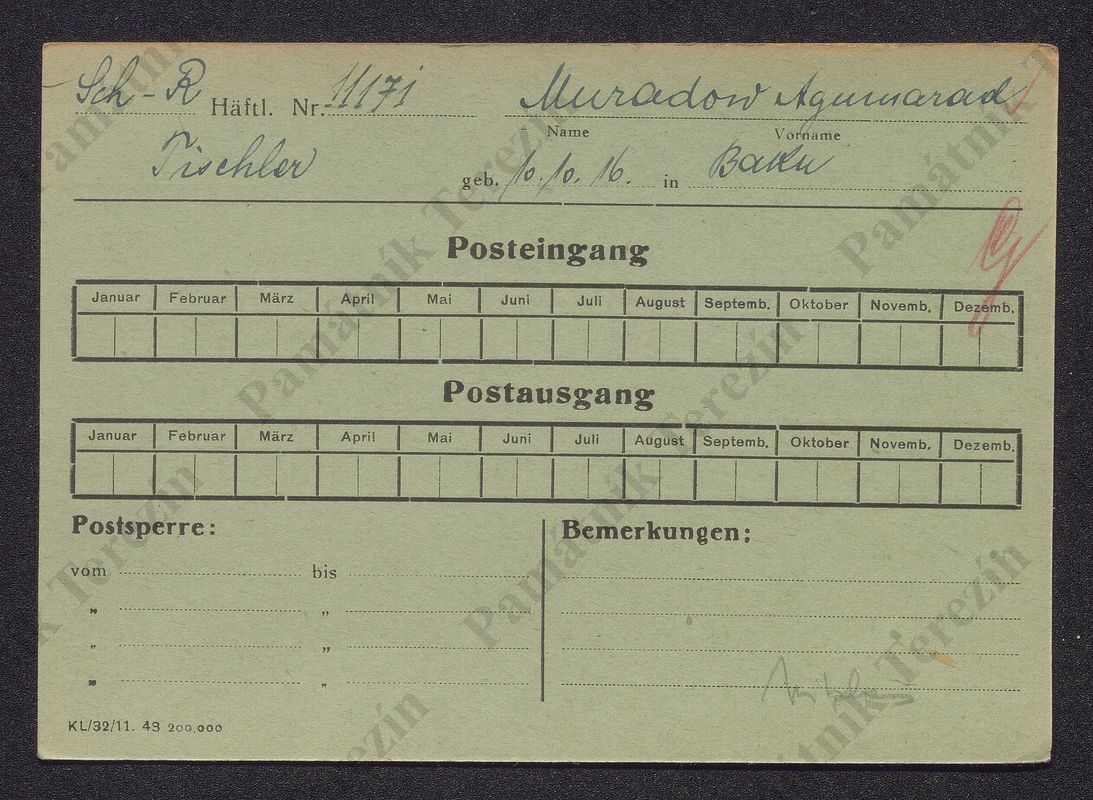 Sch - R Häftl. Nr. 11171 Muradow Agumarad
Name Vorname
Tischler geb. 10.10.16. in Baku
Posteingang
Januar Februar März April Mai Juni Juli August Septemb. Oktober Novemb. Dezemb.
Postausgang
Januar Februar März April Mai Juni Juli August Septemb. Oktober Novemb. Dezemb.
Postsperre: Bemerkungen:
vom bis
„ „
„ „
„ „
KL/32/11. 43 200.000
Památník Terezín